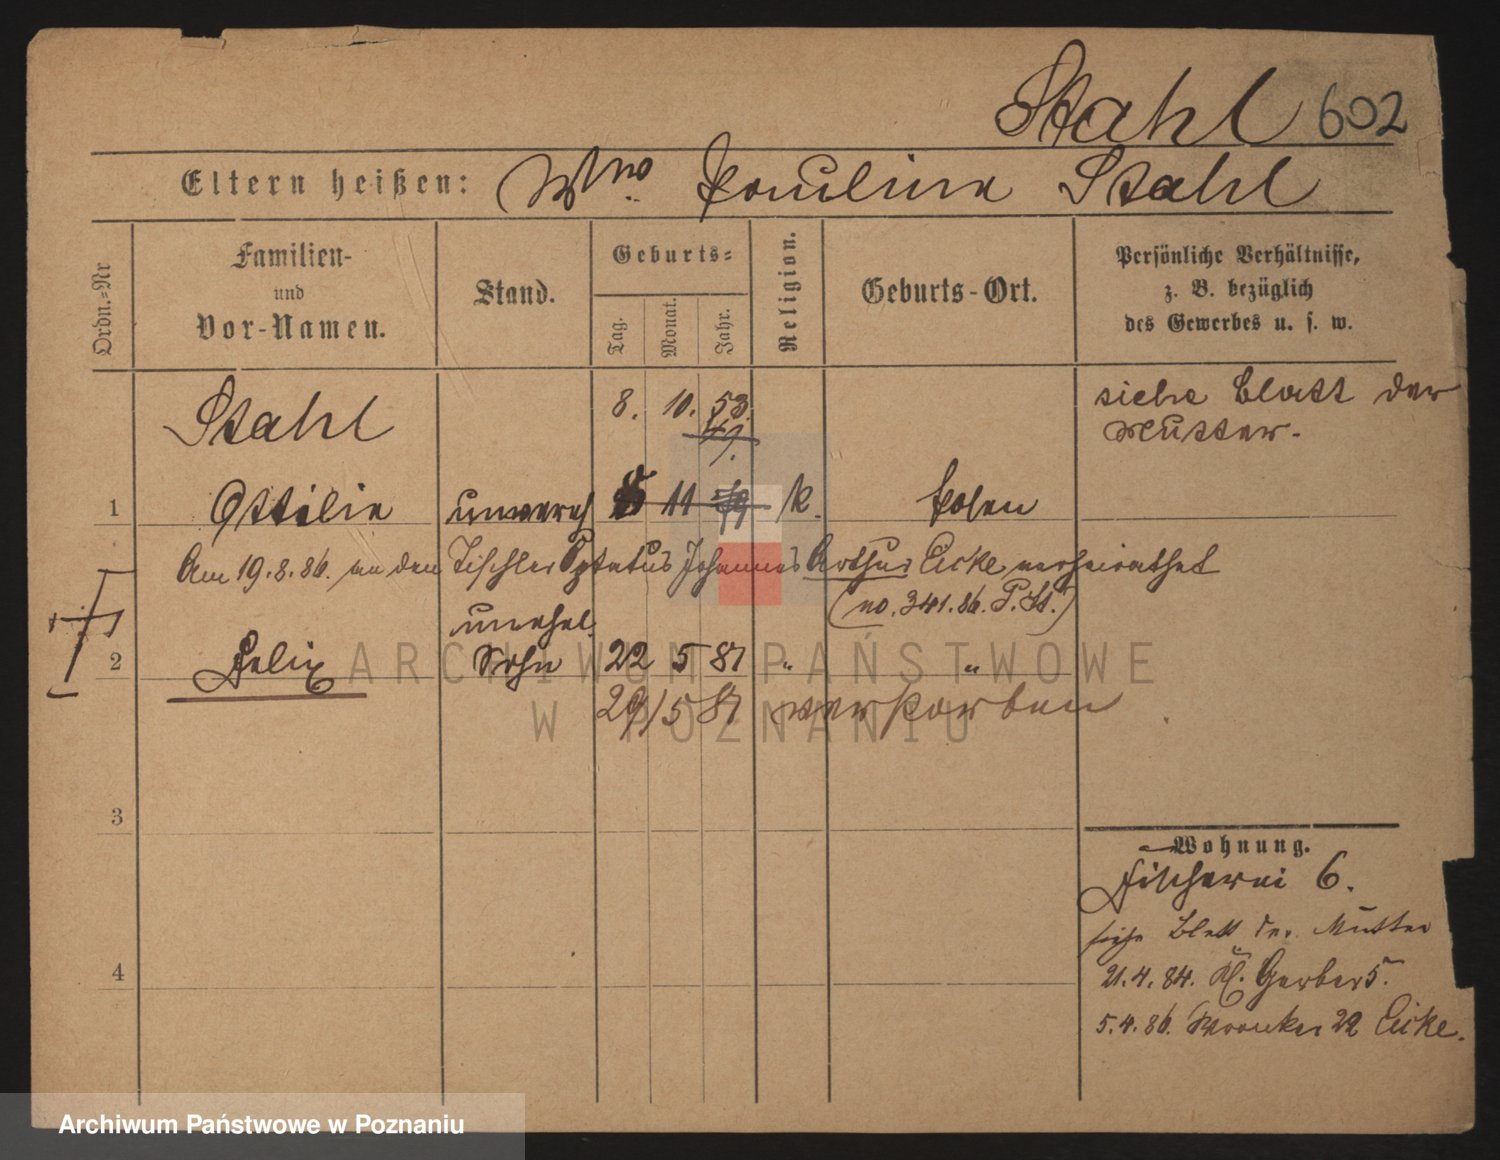 Stahl 602
Eltern heißen: Wwe. Pauline Stahl
Ordn.-Nr
Familien-
und
Vor-Namen.
Stand.
Geburts-
Tag.
Monat.
Jahr.
Religion.
Geburts-Ort.
Persönliche Verhältnisse,
z. B. bezüglich
des Gewerbes u. s. w.
Stahl 8. 10. 53. siehe Blatt der
Mutter.
1 Ottilie unvereh 11 k. Posen
Am 19.8.86. an den Tischler Optatus Johannes Arthur Eicke verheirathet
(no. 341.86. P. St.)
unehel.
2 Felix Sohn 22 5 81 " "
29/5 81 verstorben
3
Wohnung.
Fischerei 6.
siehe Blatt der Mutter
4
21.4.84. Kl. Gerber 5.
5.4.86. Wronker 22 Eicke.
ARCHIWUM PAŃSTWOWE
W POZNANIU
Archiwum Państwowe w Poznaniu